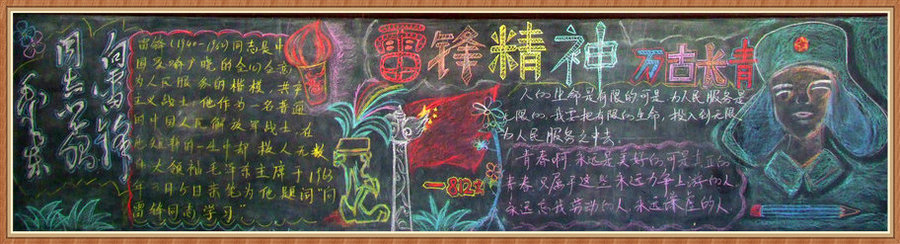 向雷锋
同志学习
毛泽东
雷锋(1940-1962)同志是中
国家喻户晓的全心全意
为人民服务的楷模,共产
主义战士;他作为一名普通
的中国人民解放军战士,在
他短暂的一生中却投人无数
伟大领袖毛泽东主席于1963
年3月5日亲笔为他题词“向
雷锋同志学习”
雷锋精神
万古长青
人的生命是有限的可是,为人民服务是
无限的,我要把有限的生命,投入到无限
为人民服务之中去
青春啊,永远是美好的,可是真正的
青春只属于这些永远力争上游的人,
永远忘我劳动的人,永远谦虚的人